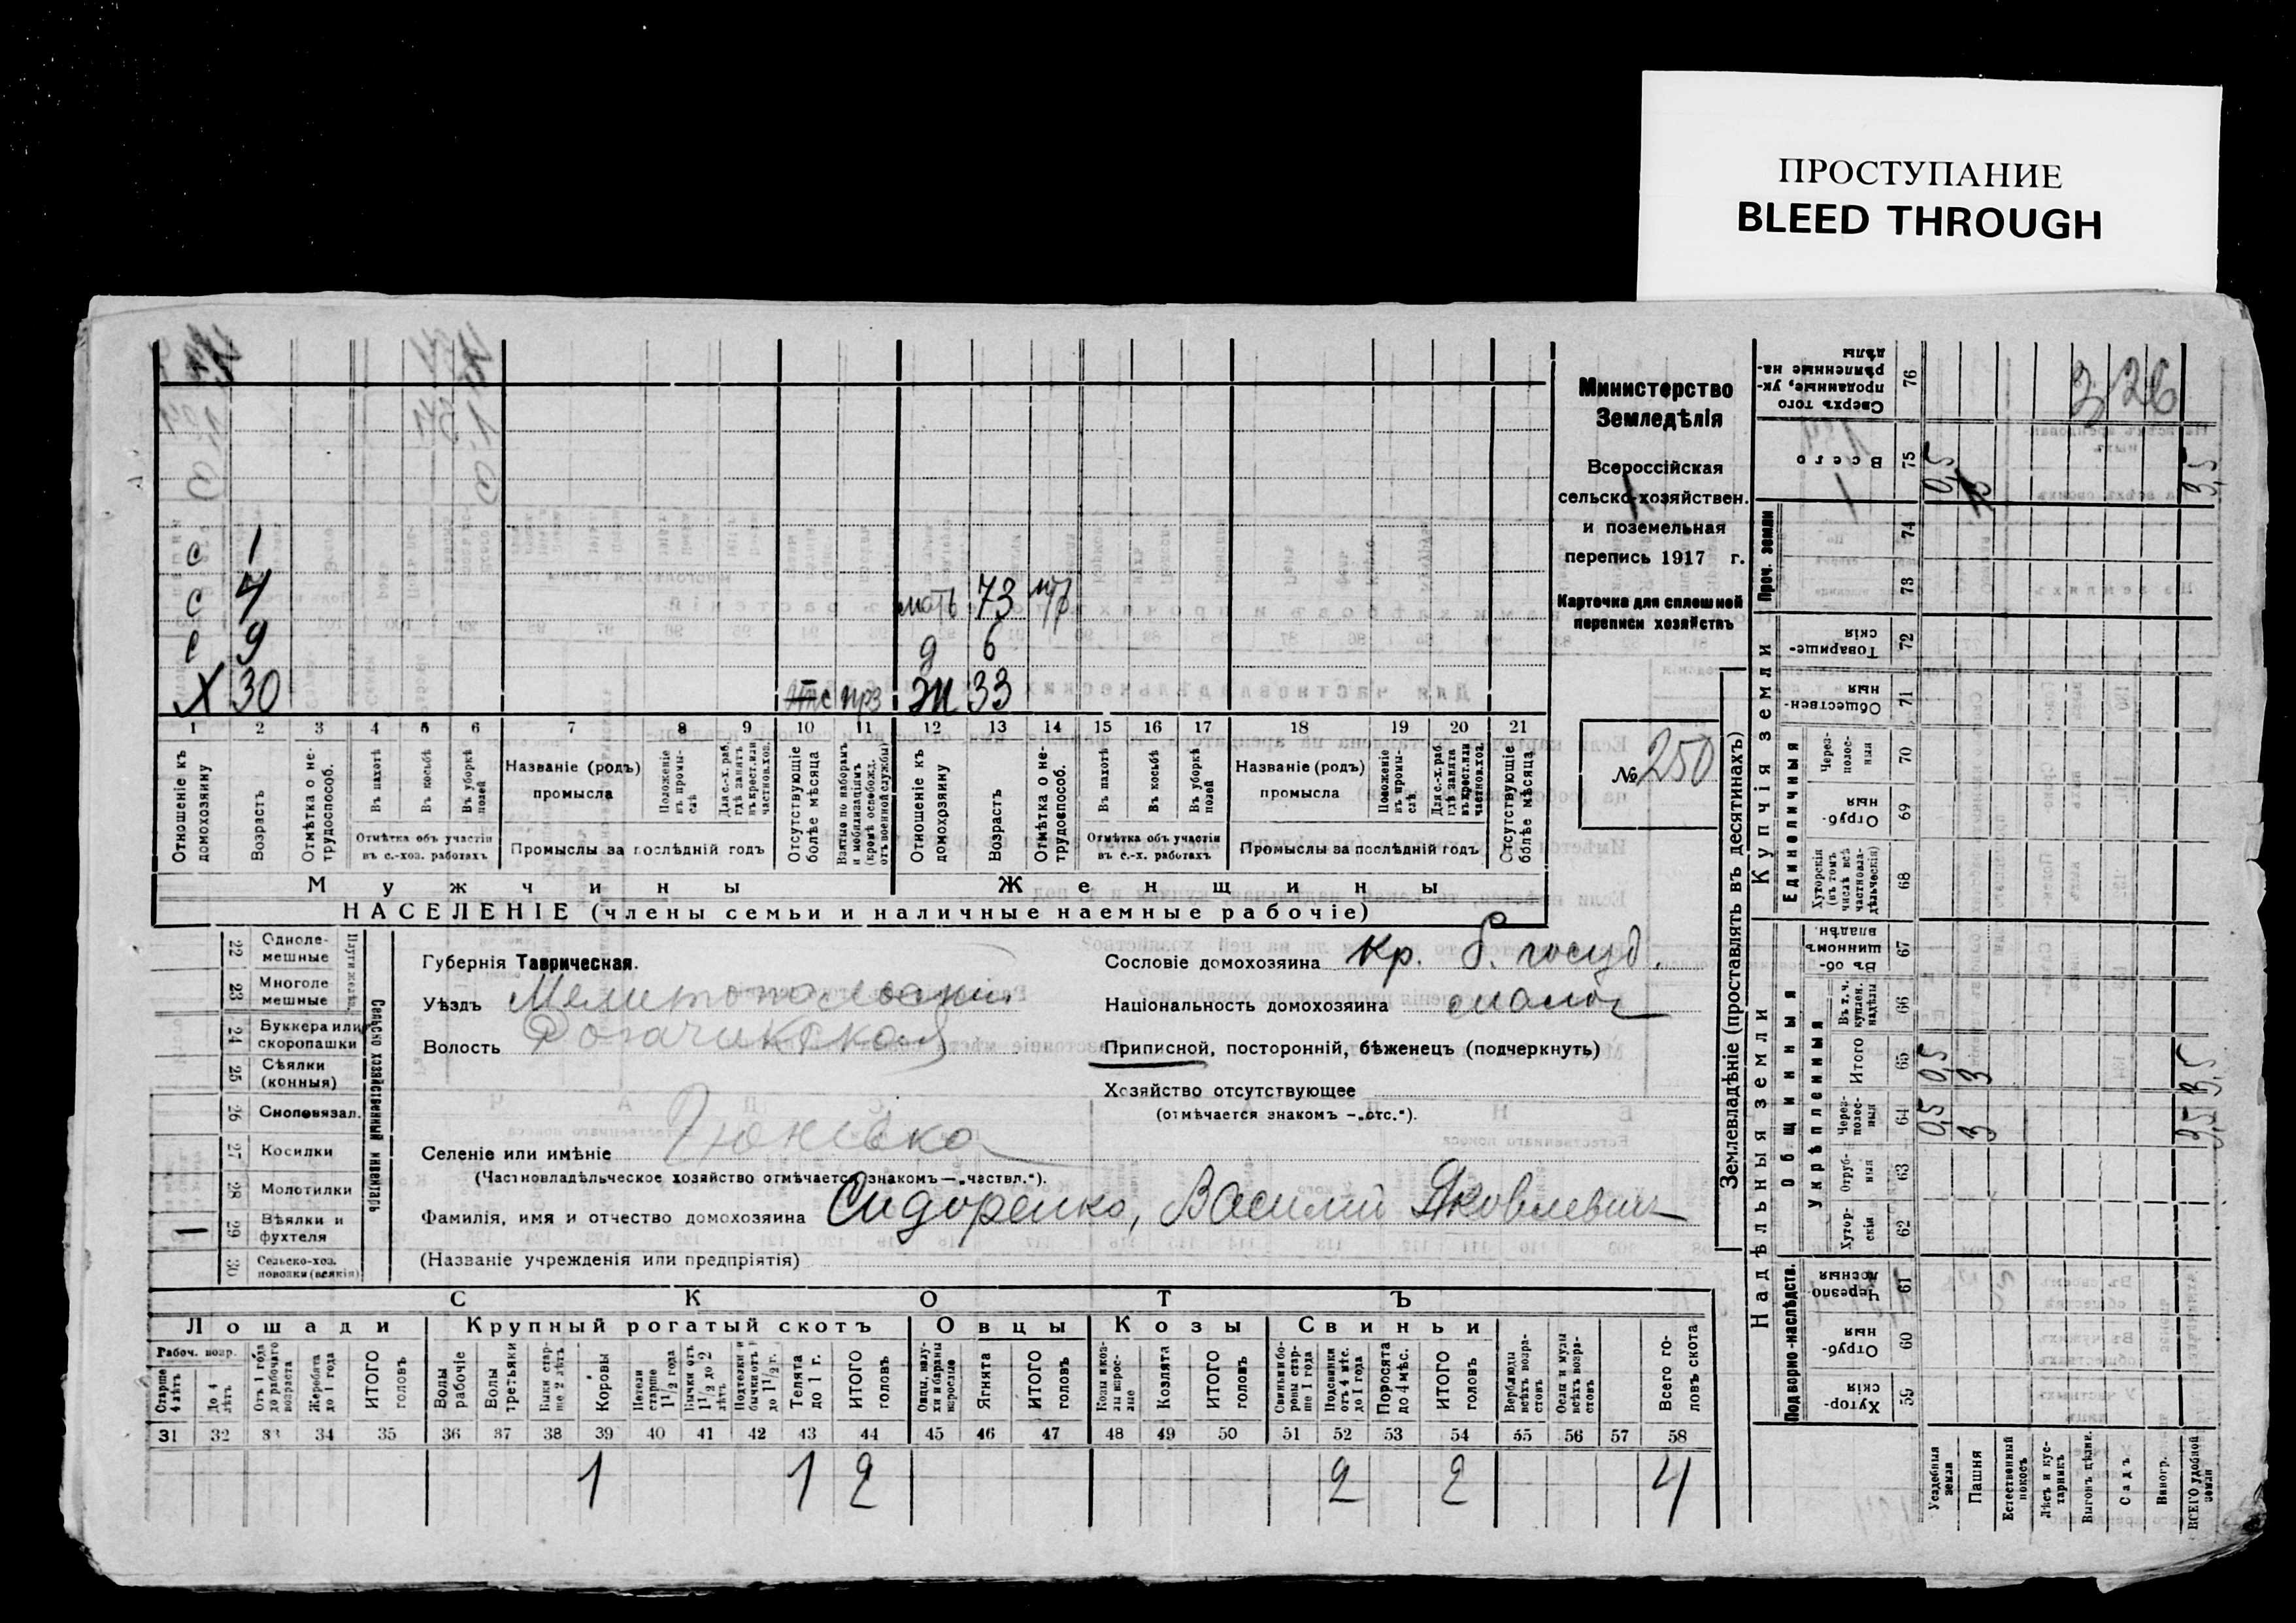 ПРОСТУПАНИЕ
BLEED THROUGH
Министерство
Земледѣлія
Всероссійская
сельско-хозяйствен.
и поземельная
перепись 1917 г.
Карточка для сплошной
переписи хозяйствъ
№ 250
с 1
с 4 мать 73
с 9 д 6
Х 30 отс прз ж 33
1 2 3 4 5 6 7 8 9 10 11 12 13 14 15 16 17 18 19 20 21
Отношеніе къ домохозяину
Возрастъ
Отмѣтка о не-трудоспособ.
Въ пахотѣ
Въ косьбѣ
Въ уборкѣ полей
Отмѣтка объ участіи въ с.-хоз. работахъ
Названіе (родъ) промысла
Положеніе въ промы-слѣ
Для с.-х. раб. гдѣ занятъ въ крест. или частнов. хоз.
Промыслы за послѣдній годъ
Отсутствующіе болѣе мѣсяца
Взятые по наборамъ и мобилизаціямъ (кромѣ освобожд. отъ военной службы)
Отношеніе къ домохозяину
Возрастъ
Отмѣтка о не-трудоспособ.
Въ пахотѣ
Въ косьбѣ
Въ уборкѣ полей
Отмѣтка объ участіи въ с.-х. работахъ
Названіе (родъ) промысла
Положеніе въ промы-слѣ
Для с.-х. раб. гдѣ занята въ крест. или частнов. хоз.
Промыслы за послѣдній годъ
Отсутствующіе болѣе мѣсяца
Мужчины Женщины
НАСЕЛЕНІЕ (члены семьи и наличные наемные рабочіе)
Сельско хозяйственный инвентарь
22 Одноле-мешные
23 Многоле мешные
24 Буккера или скоропашки
25 Сѣялки (конныя)
26 Сноповязал.
27 Косилки
28 Молотилки
29 Вѣялки и фухтеля 1
30 Сельско-хоз. повозки (всякія)
Губернія Таврическая.
Уѣздъ Мелитопольскій
Волость Рогачикская
Селеніе или имѣніе
(Частновладѣльческое хозяйство отмѣчается знакомъ—„частвл.“).
Фамилія, имя и отчество домохозяина Сидоренко, Василій Яковлевич
(Названіе учрежденія или предпріятія)
Сословіе домохозяина кр. б. госуд.
Національность домохозяина малор
Приписной, посторонній, бѣженецъ (подчеркнуть)
Хозяйство отсутствующее
(отмѣчается знакомъ —„отс.“).
СКОТЪ
Лошади Крупный рогатый скотъ Овцы Козы Свиньи
Рабоч. возр.
Старше 4 лѣтъ
До 4 лѣтъ
Отъ 1 года до рабочаго возраста
Жеребята до 1 года
ИТОГО головъ
Волы рабочіе
Волы третьяки
Быки стар-ше 2 лѣтъ
Коровы
Нетели старше 1 1/2 года
Бычки отъ 1 1/2 до 2 лѣтъ
Подтелки и бычки отъ 1 до 1 1/2 г.
Телята до 1 г.
ИТОГО головъ
Овцы, валу-хи и бараны взрослые
Ягнята
ИТОГО головъ
Козы и коз-лы взрос-лые
Козлята
ИТОГО головъ
Свиньи и бо-ровы стар-ше 1 года
Подсвинки отъ 4 мѣс. до 1 года
Поросята до 4 мѣс.
ИТОГО головъ
Верблюды всѣхъ возра-стовъ
Ослы и мулы всѣхъ возра-стовъ
Всего го-ловъ скота
31 32 33 34 35 36 37 38 39 40 41 42 43 44 45 46 47 48 49 50 51 52 53 54 55 56 57 58
1 1 2 2 2 4
Землевладѣніе (проставлять въ десятинахъ)
Надѣльныя земли Купчія земли Проч. земли
Подворно-наслѣдств. Общинныя Единоличныя
Укрѣпленныя
Хутор-скія 59
Отруб-ныя 60
Черезпо-лосныя 61
Хутор-скія 62
Отруб-ныя 63
Черезполос-ныя 64 0,5 3 3,5
Итого 65 0,5 3 3,5
Въ т. ч. куплен. надѣлы 66
Въ об-щинномъ владѣн. 67
Хуторскія (въ томъ числѣ всѣ частновла-дѣльческія) 68
Отруб-ныя 69
Через-полос-ныя 70
Обществен-ныя 71
Товарище-скія 72
73
74
Всего 75 0,5 3 3,5
Сверхъ того проданные, ук-рѣпленные на-дѣлы 76
3 26
Усадебная земля
Пашня
Естественный покосъ
Лѣсъ и кус-тарникъ
Выгонъ цѣлин.
Садъ
Виногр.
ВСЕГО удобной земли